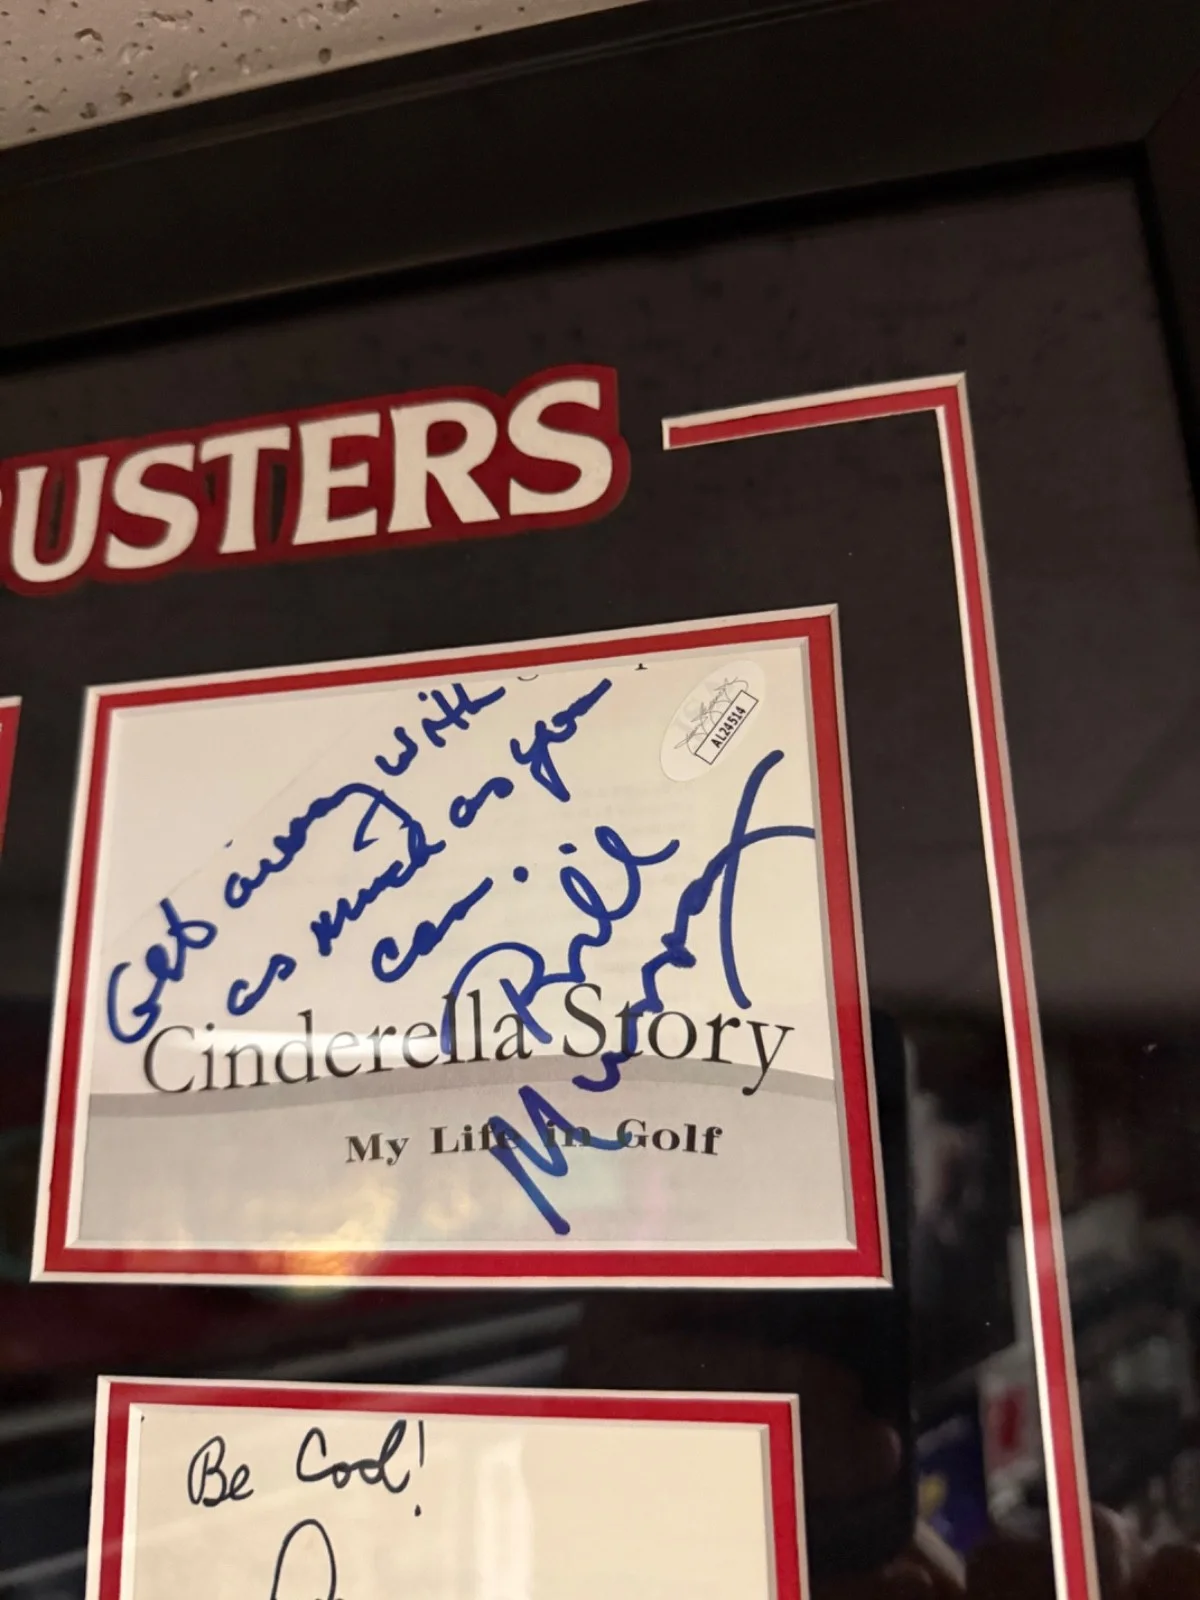 USTERS
AL24514
Get away with
as much as you
can.
Bill
Murray
Cinderella Story
My Life in Golf
Be Cool!